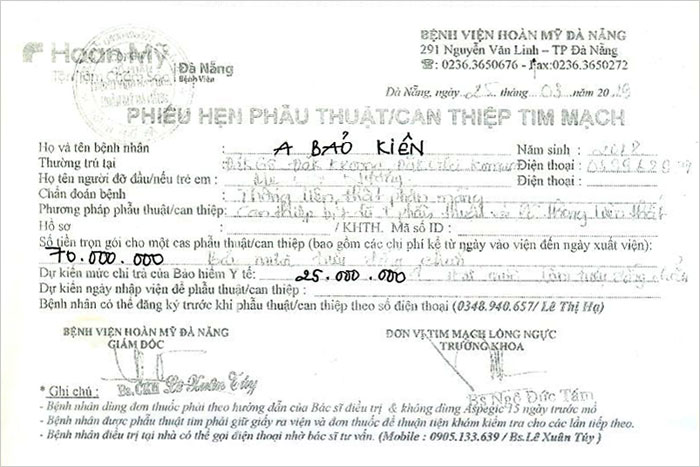 Hoàn Mỹ
Đà Nẵng
Bệnh Viện
BỆNH VIỆN HOÀN MỸ ĐÀ NẴNG
291 Nguyễn Văn Linh – TP Đà Nẵng
☎: 0236.3650676 - Fax:0236.3650272
Đà Nẵng, ngày 25 tháng 03 năm 2019
PHIẾU HẸN PHẪU THUẬT/CAN THIỆP TIM MẠCH
Họ và tên bệnh nhân : A BẢO KIÊN Năm sinh : 2018
Thường trú tại : Điện thoại :
Họ tên người đỡ đầu/nếu trẻ em : Điện thoại :
Chẩn đoán bệnh : Thông liên thất phần màng
Phương pháp phẫu thuật/can thiệp: Can thiệp phẫu thuật thông liên thất
Hồ sơ : / KHTH. Mã số ID :
Số tiền trọn gói cho một cas phẫu thuật/can thiệp (bao gồm các chi phí kể từ ngày vào viện đến ngày xuất viện):
70.000.000
Dự kiến mức chi trả của Bảo hiểm Y tế: 25.000.000
Dự kiến ngày nhập viện để phẫu thuật/can thiệp :
Bệnh nhân có thể đăng ký trước khi phẫu thuật/can thiệp theo số điện thoại (0348.940.657/ Lê Thị Hạ)
BỆNH VIỆN HOÀN MỸ ĐÀ NẴNG
GIÁM ĐỐC
ĐƠN VỊ TIM MẠCH LỒNG NGỰC
TRƯỞNG KHOA
Bs.CKII Lê Xuân Túy
Bs Ngô Đức Tâm
* Ghi chú :
- Bệnh nhân dùng đơn thuốc phải theo hướng dẫn của Bác sĩ điều trị & không dùng Aspegic 15 ngày trước mổ
- Bệnh nhân được phẫu thuật tim phải giữ giấy ra viện và đơn thuốc để thuận tiện khám kiểm tra cho các lần tiếp theo.
- Bệnh nhân điều trị tại nhà có thể gọi điện thoại nhờ bác sĩ tư vấn. (Mobile : 0905.133.639 / Bs.Lê Xuân Túy )